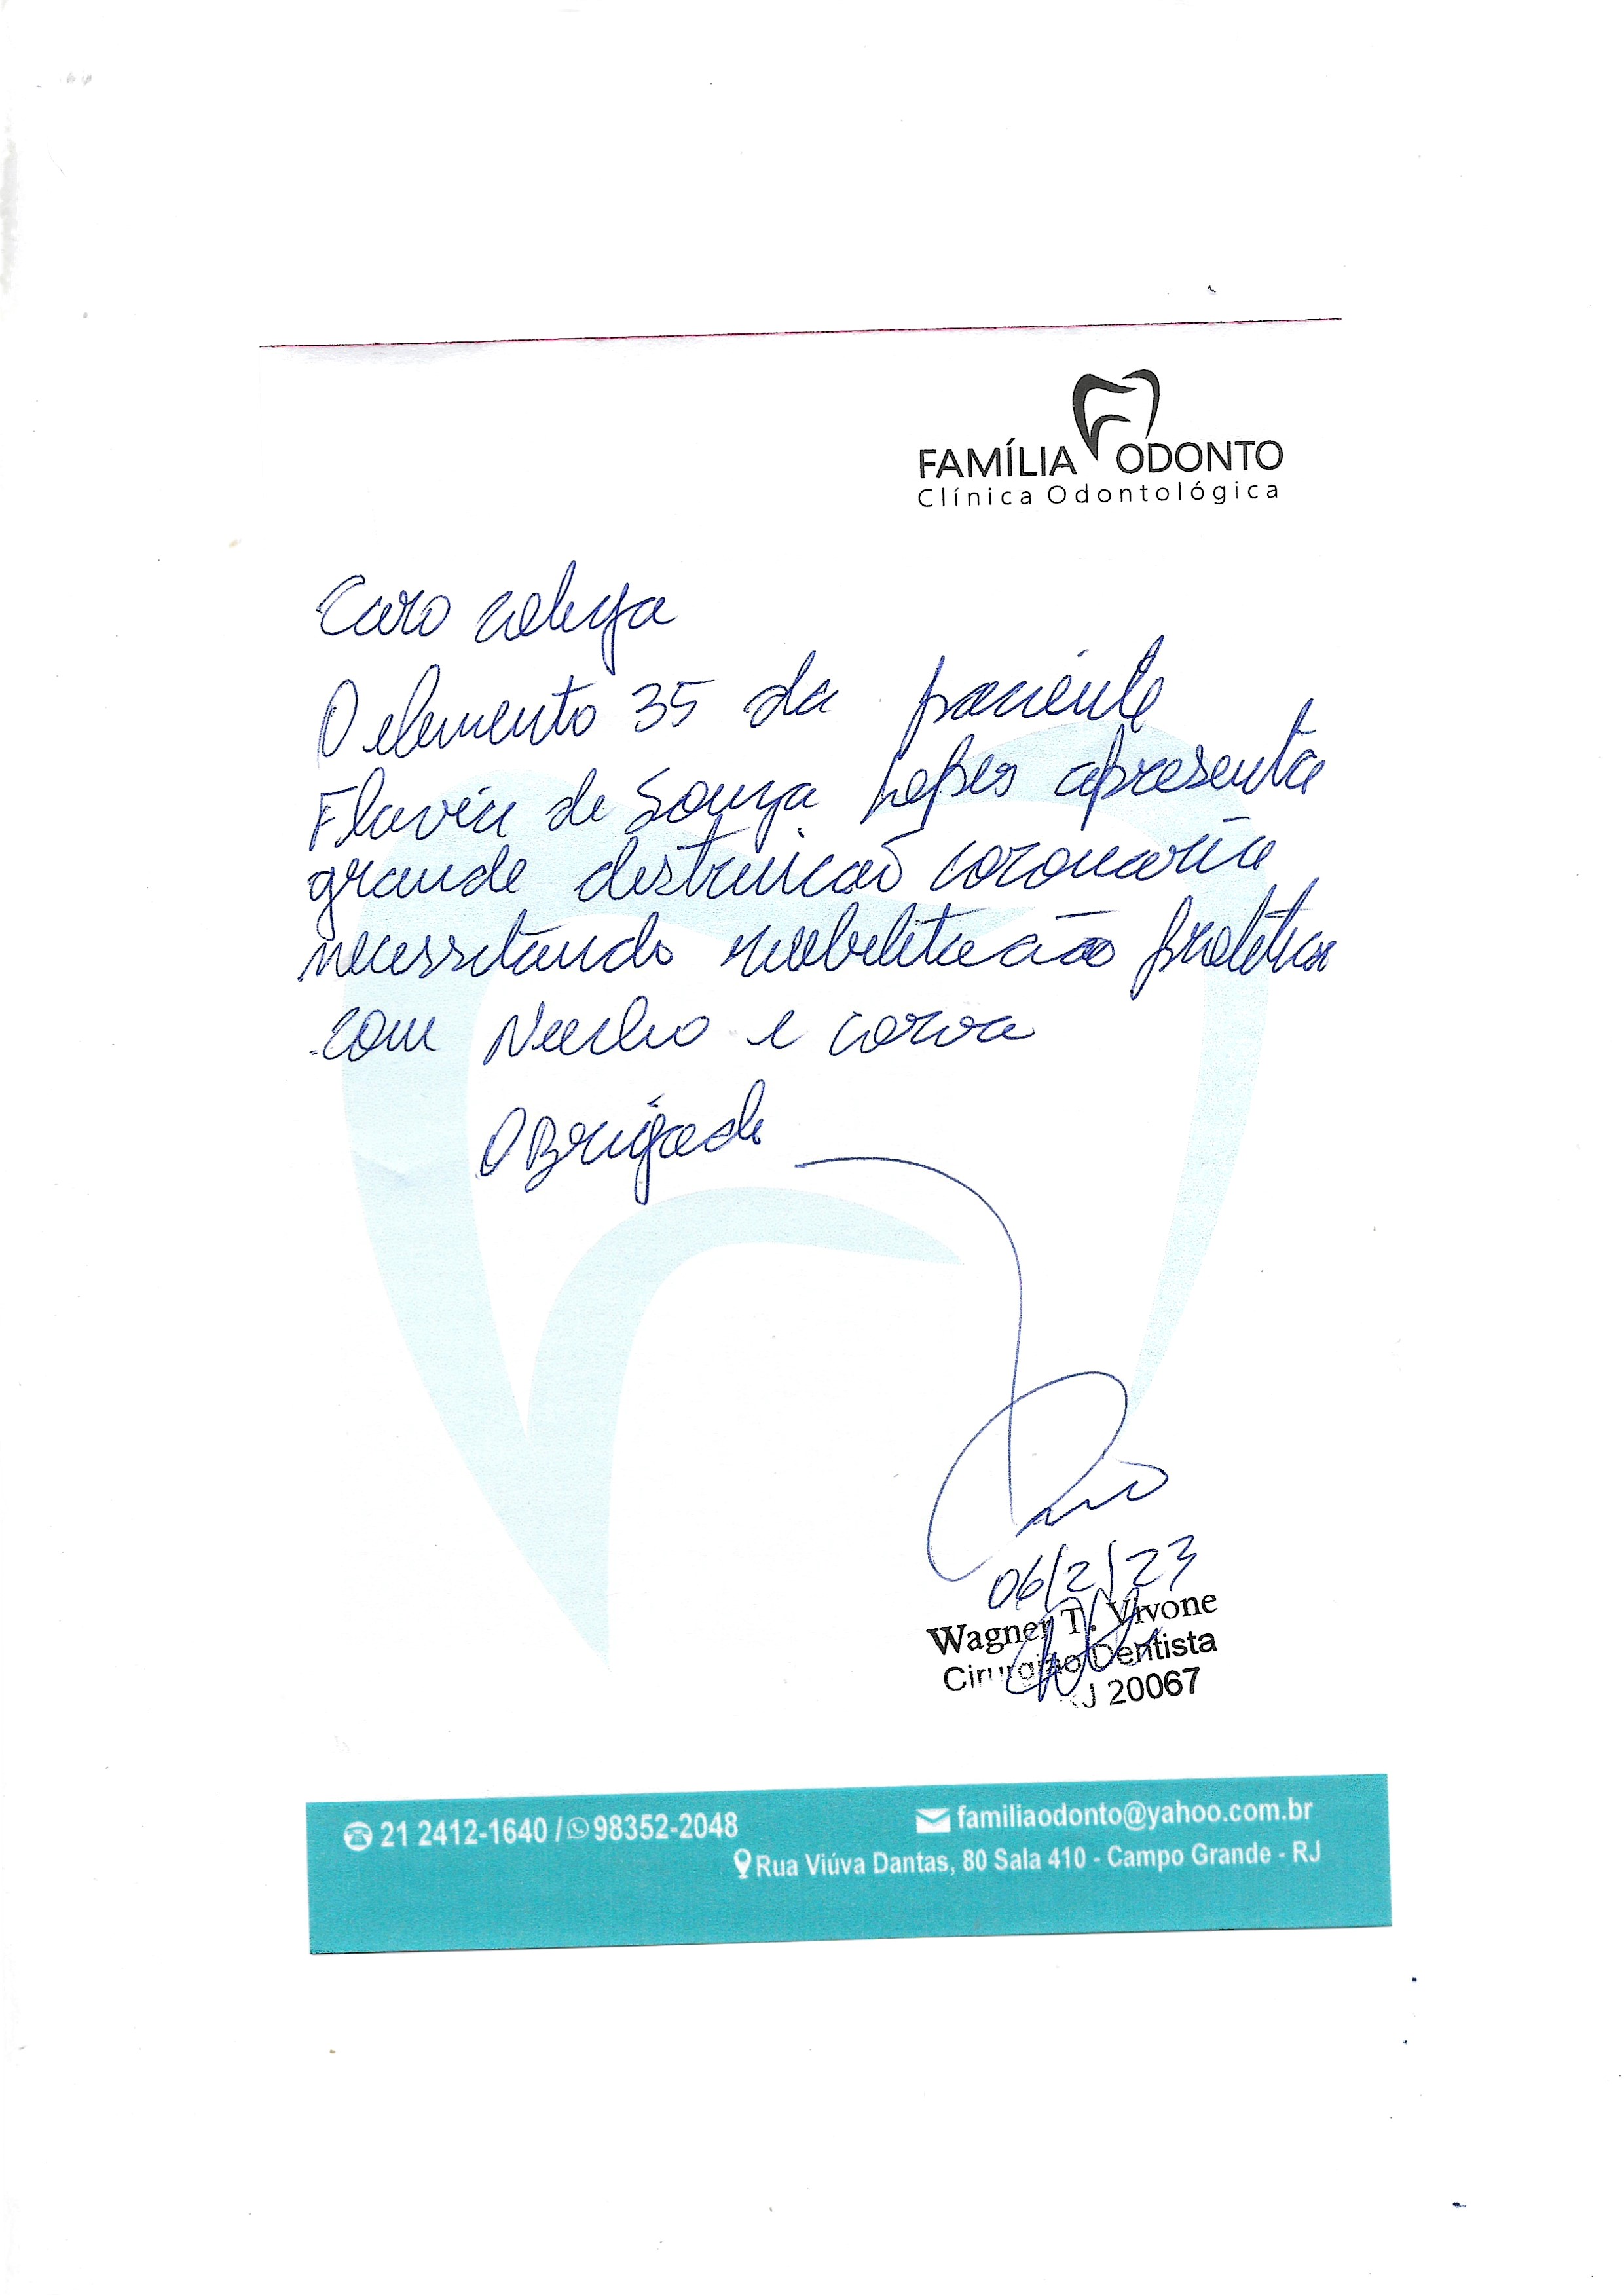 FAMÍLIA ODONTO
Clínica Odontológica
Caro colega
O elemento 35 da paciente
Flavia de Souza Lopes apresenta
grande destruicão coronaria
necessitando reabilitacão protetica
com Nucleo e coroa
Obrigado
06/2/23
Wagner T. Vivone
Cirurgião Dentista
RJ 20067
21 2412-1640 / 98352-2048
familiaodonto@yahoo.com.br
Rua Viúva Dantas, 80 Sala 410 - Campo Grande - RJ